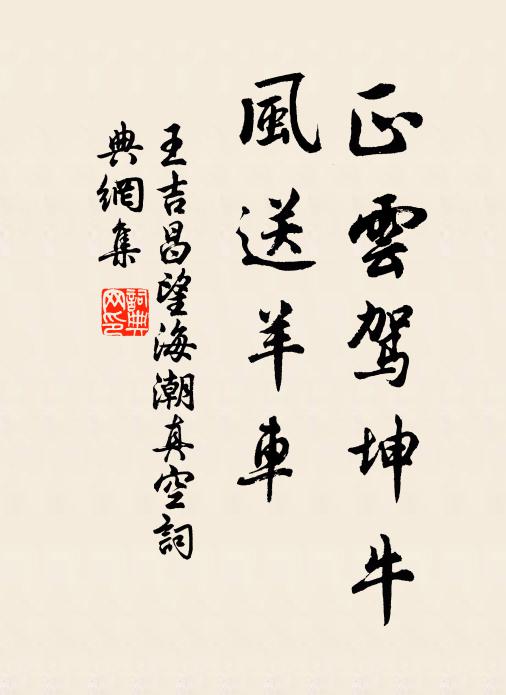 正雲駕坤牛
風送羊車
王吉昌望海潮真空詞
典網集
詞典
网印